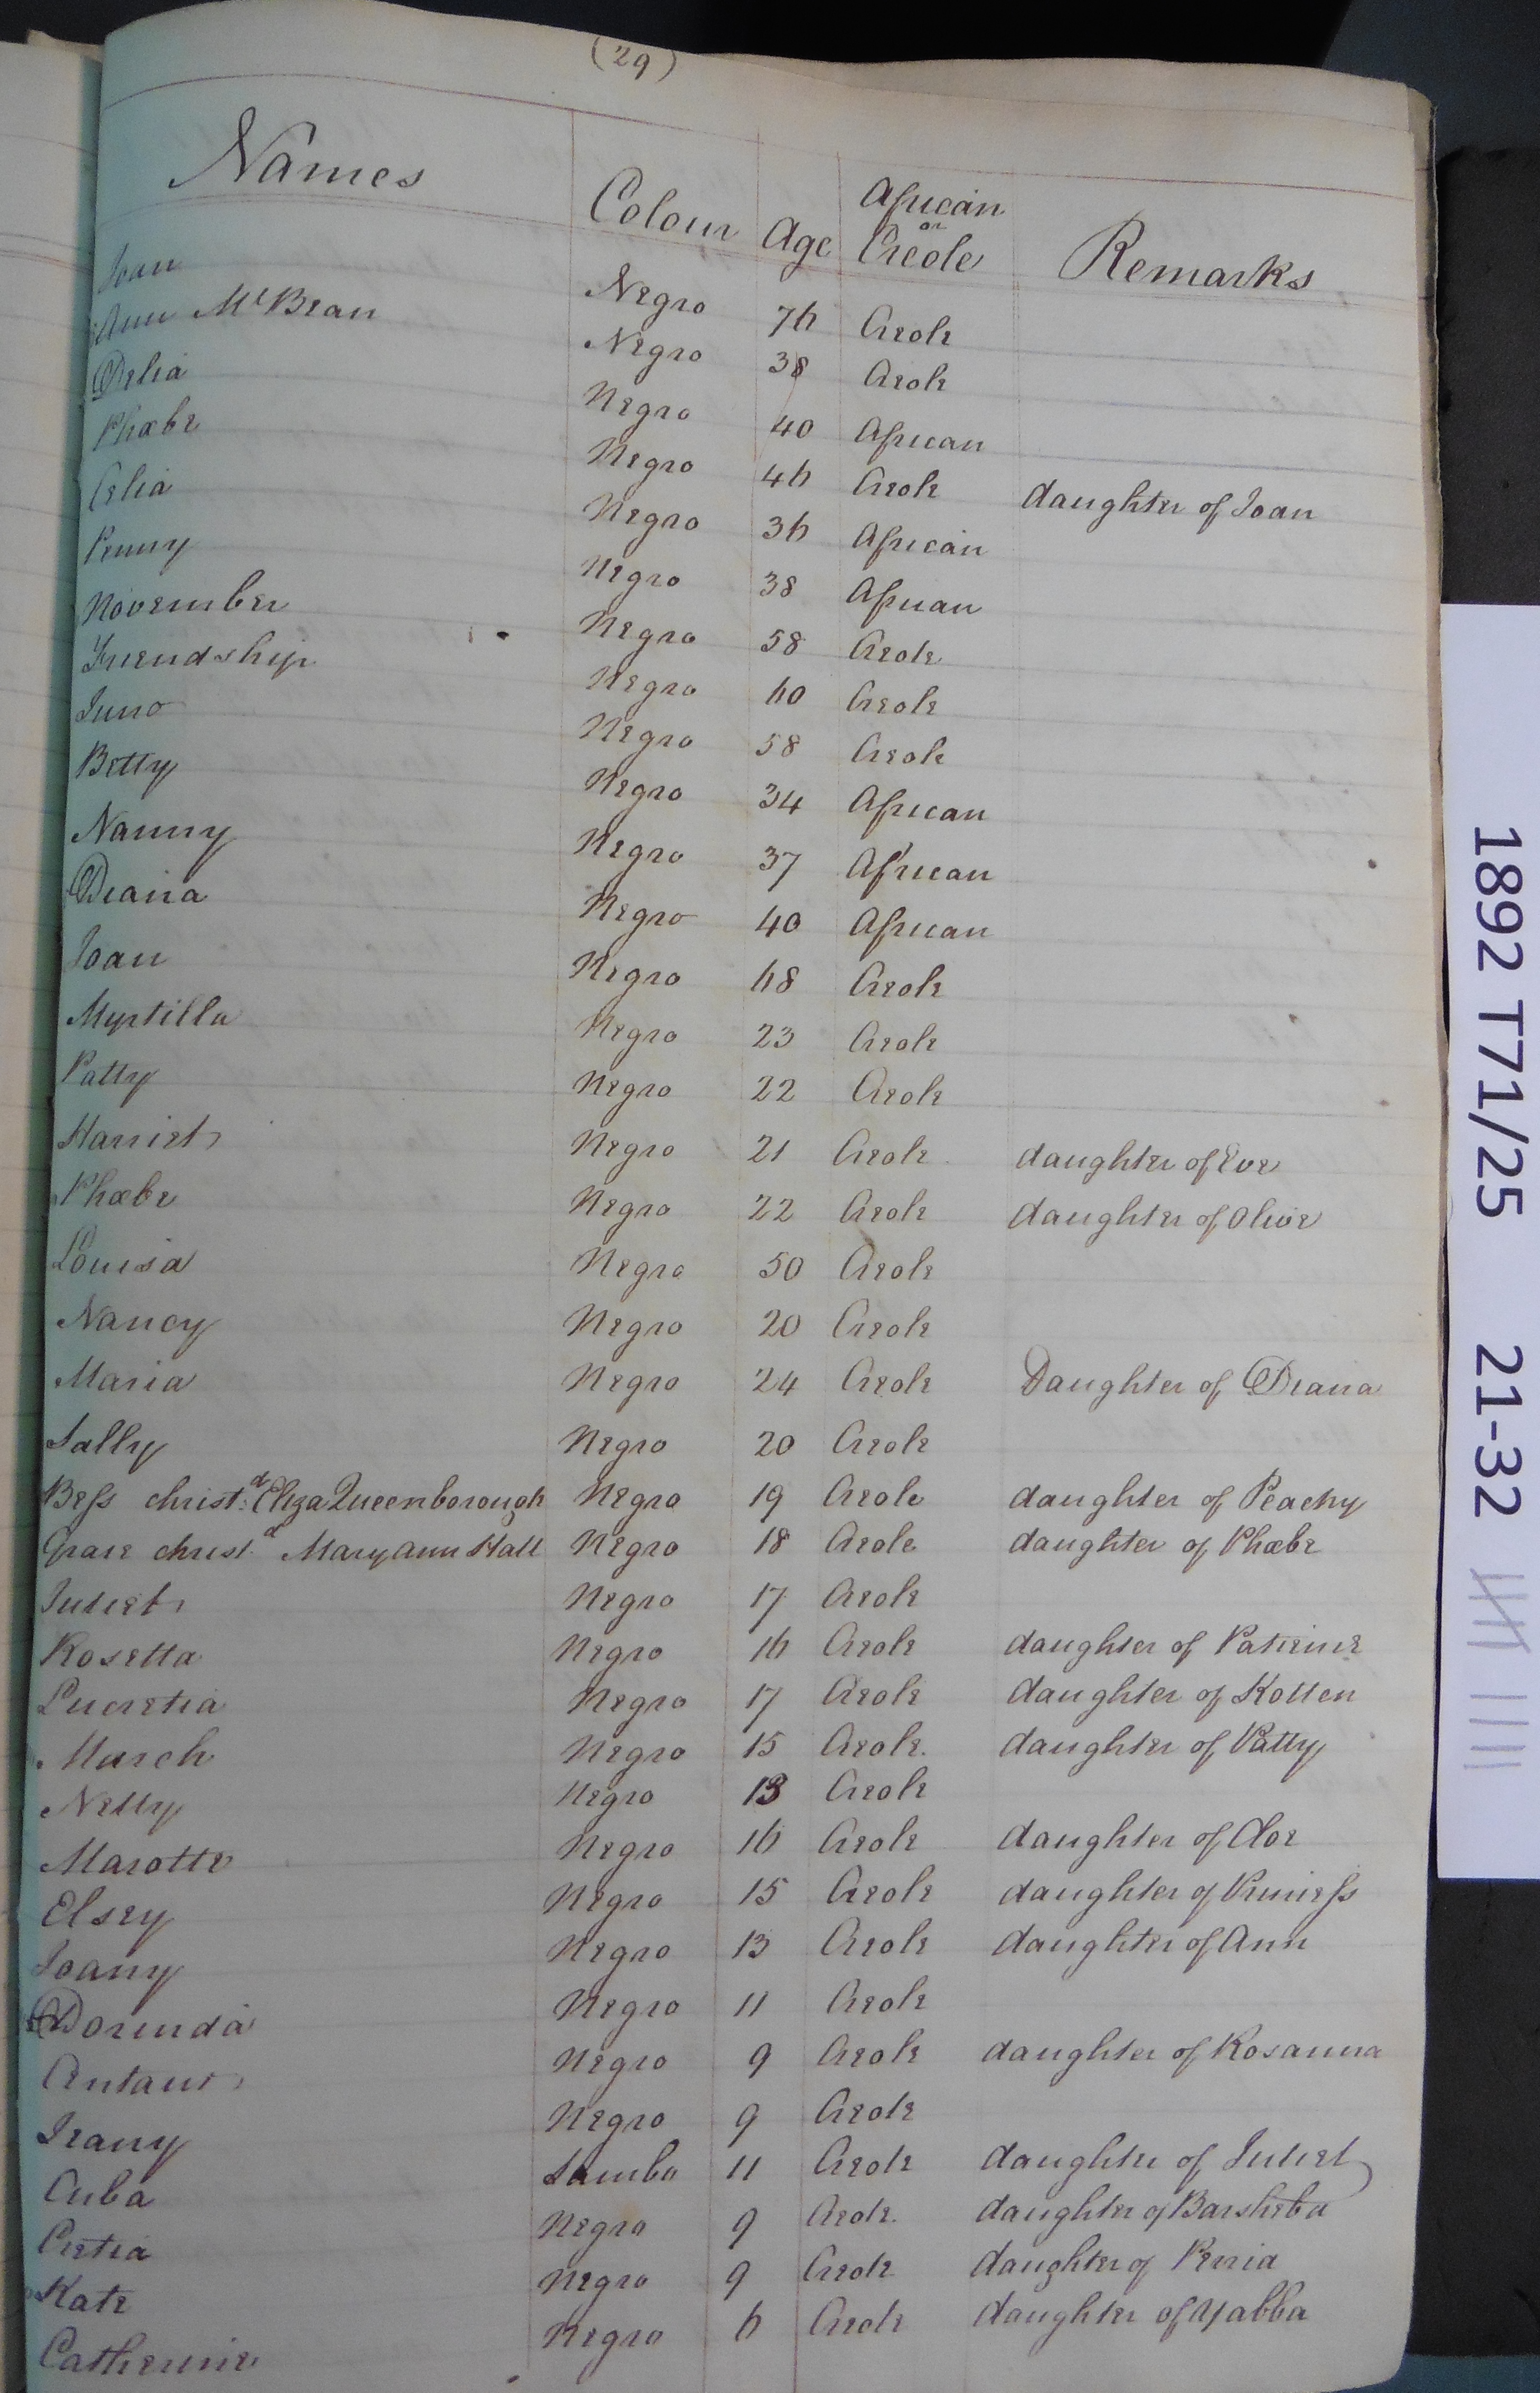 (29)
Names Colour Age African or Creole Remarks
Joan Negro 76 Creole
Ann McBean Negro 38 Creole
Delia Negro 40 African
Phœbe Negro 46 Creole daughter of Joan
Celia Negro 36 African
Penny Negro 38 African
November Negro 58 Creole
Friendship Negro 60 Creole
Juno Negro 58 Creole
Betty Negro 34 African
Nanny Negro 37 African
Diana Negro 40 African
Joan Negro 68 Creole
Myrtilla Negro 23 Creole
Patty Negro 22 Creole
Harriet Negro 21 Creole daughter of Eve
Phœbe Negro 22 Creole daughter of Olive
Louisa Negro 50 Creole
Nancy Negro 20 Creole
Maria Negro 24 Creole Daughter of Diana
Sally Negro 20 Creole
Bess christ.d Eliza Queenborough Negro 19 Creole daughter of Peachy
Grace christ.d Mary Ann Hall Negro 18 Creole daughter of Phœbe
Juliet Negro 17 Creole
Rosetta Negro 16 Creole daughter of Patience
Lucretia Negro 17 Creole daughter of Kotten
March Negro 15 Creole daughter of Patty
Netty Negro 13 Creole
Marotte Negro 16 Creole daughter of Cloe
Elsey Negro 15 Creole daughter of Princess
Joany Negro 13 Creole daughter of Ann
Dorinda Negro 11 Creole
Negro 9 Creole daughter of Rosanna
Jeany Negro 9 Creole
Cuba Sambo 11 Creole daughter of Juliet
Cretia Negro 9 Creole daughter of Barsheba
Kate Negro 9 Creole daughter of
Catherine Negro 6 Creole daughter of Yabba
1892 T71/25 21-32